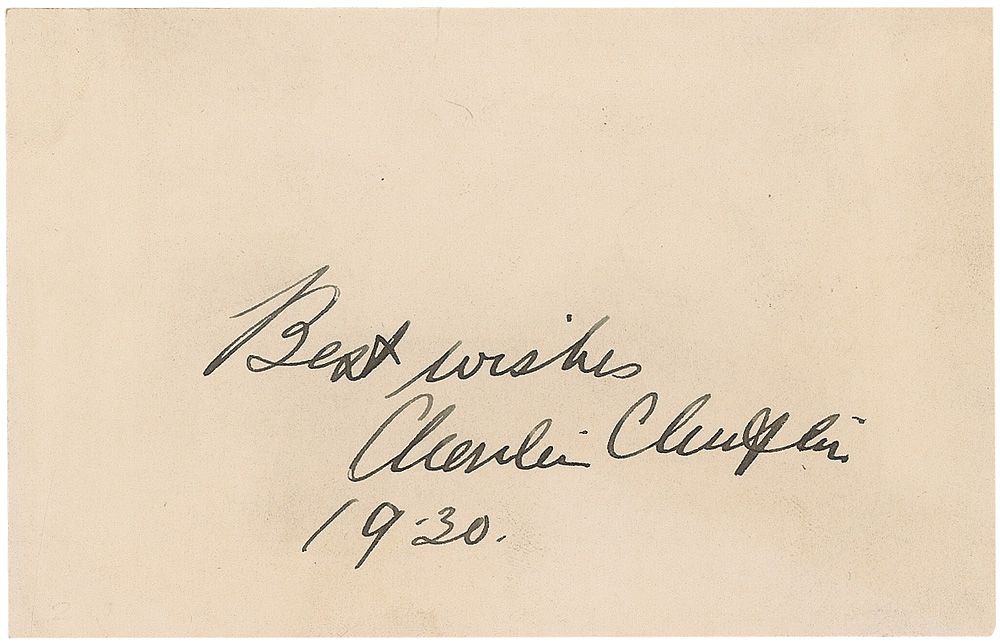 Best wishes
Charlie Chaplin
1930.